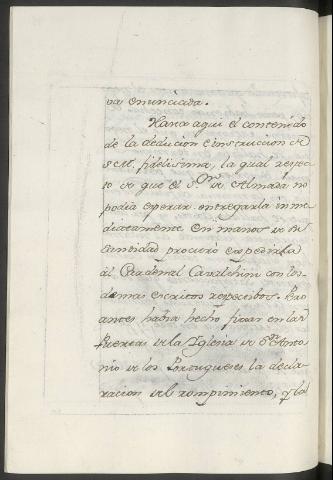 va enunciada.
Hasta aqui el contenido
de la deducion e instruccion de
S. M. fidelisima, la qual respec-
to de que el S.or de Almada no
podia esperar entregarla inme
diatamente en manos de su
Santidad procuró expedirla
al Cardenal Cavalchini con los
demas escritos respectibos. Pero
antes habia hecho fixar en las
Puertas de la Iglesia de S.n Anto
nio de los Portugueses la decla-
racion del rompimiento, y la